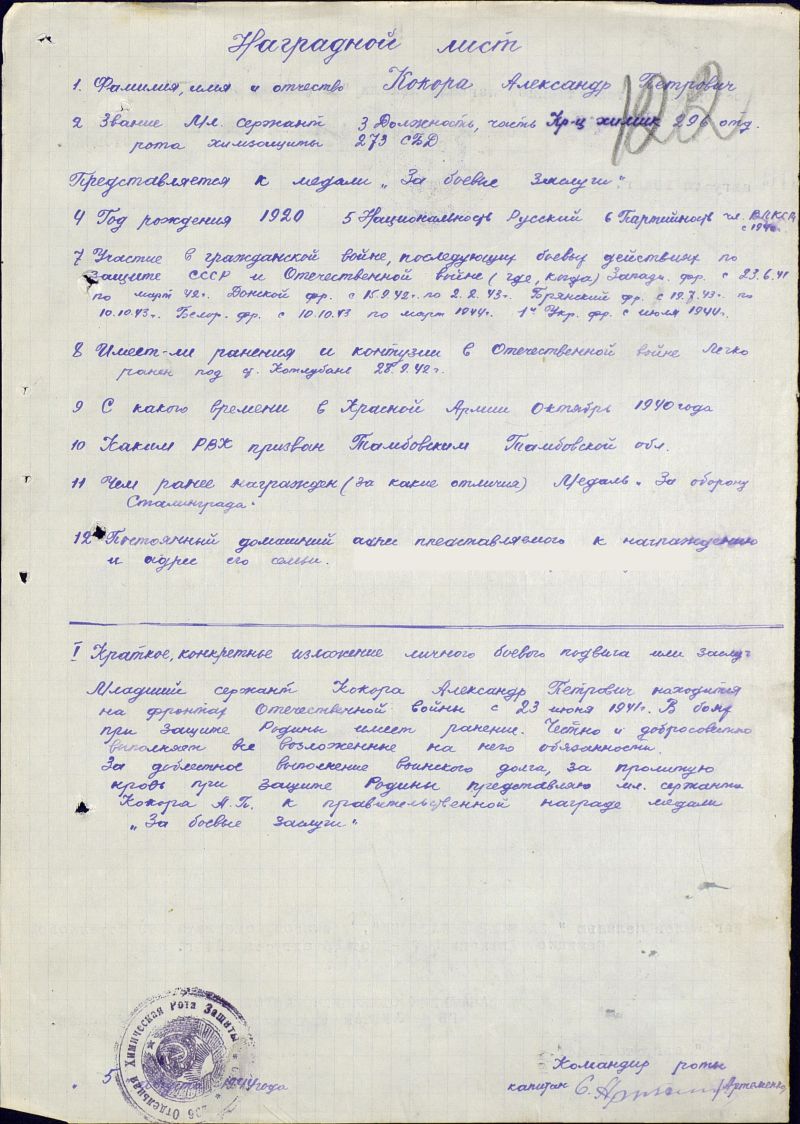 Наградной лист
1. Фамилия, имя и отчество Кокора Александр Петрович
122
2 Звание Мл. сержант 3 Должность, часть Кр-ц химик 296 отд.
рота химзащиты 273 СБД
Представляется к медали „За боевые заслуги"
4 Год рождения 1920 5 Национальность Русский 6 Партийность чл. ВЛКСМ
с 1940
7 Участие в гражданской войне, последующих боевых действиях по
защите СССР и Отечественной войне (где, когда) Западн. фр. с 23.6.41
по март 42г. Донской фр. с 15.9.42г. по 2.2.43г. Брянский фр. с 19.7.43г. по
10.10.43г. Белор. фр. с 10.10.43 по март 1944г. 1й Укр. фр. с июля 1944г.
8 Имеет-ли ранения и контузии в Отечественной войне Легко
ранен под д. Котлубань 28.9.42г.
9 С какого времени в Красной Армии Октябрь 1940 года
10 Каким РВК призван Тамбовским Тамбовской обл.
11 Чем ранее награжден (за какие отличия) Медаль „За оборону
Сталинграда"
12 Постоянный домашний адрес представляемого к награждению
и адрес его семьи.
I Краткое, конкретное изложение личного боевого подвига или заслуг
Младший сержант Кокора Александр Петрович находится
на фронтах Отечественной войны с 23 июня 1941г. В боях
при защите Родины имеет ранение. Честно и добросовестно
выполняет все возложенные на него обязанности.
За доблестное выполнение воинского долга, за пролитую
кровь при защите Родины представляю мл. сержанта
Кокора А.П. к правительственной награде медали
„За боевые заслуги"
Отдельная Химическая Рота Защиты
5 августа 1944 года
Командир роты
капитан /Артеменко/